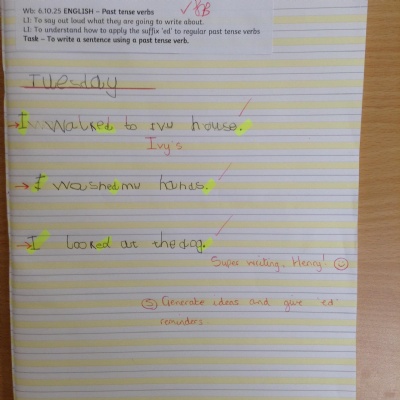 Wb: 6.10.25 ENGLISH – Past tense verbs
LI: To say out loud what they are going to write about.
LI: To understand how to apply the suffix 'ed' to regular past tense verbs
Task – To write a sentence using a past tense verb.
Tuesday
I walked to Ivu house.
Ivy's
I washed mu hands.
I looked at the dog.
Super writing, Henry!
S Generate ideas and give 'ed'
reminders